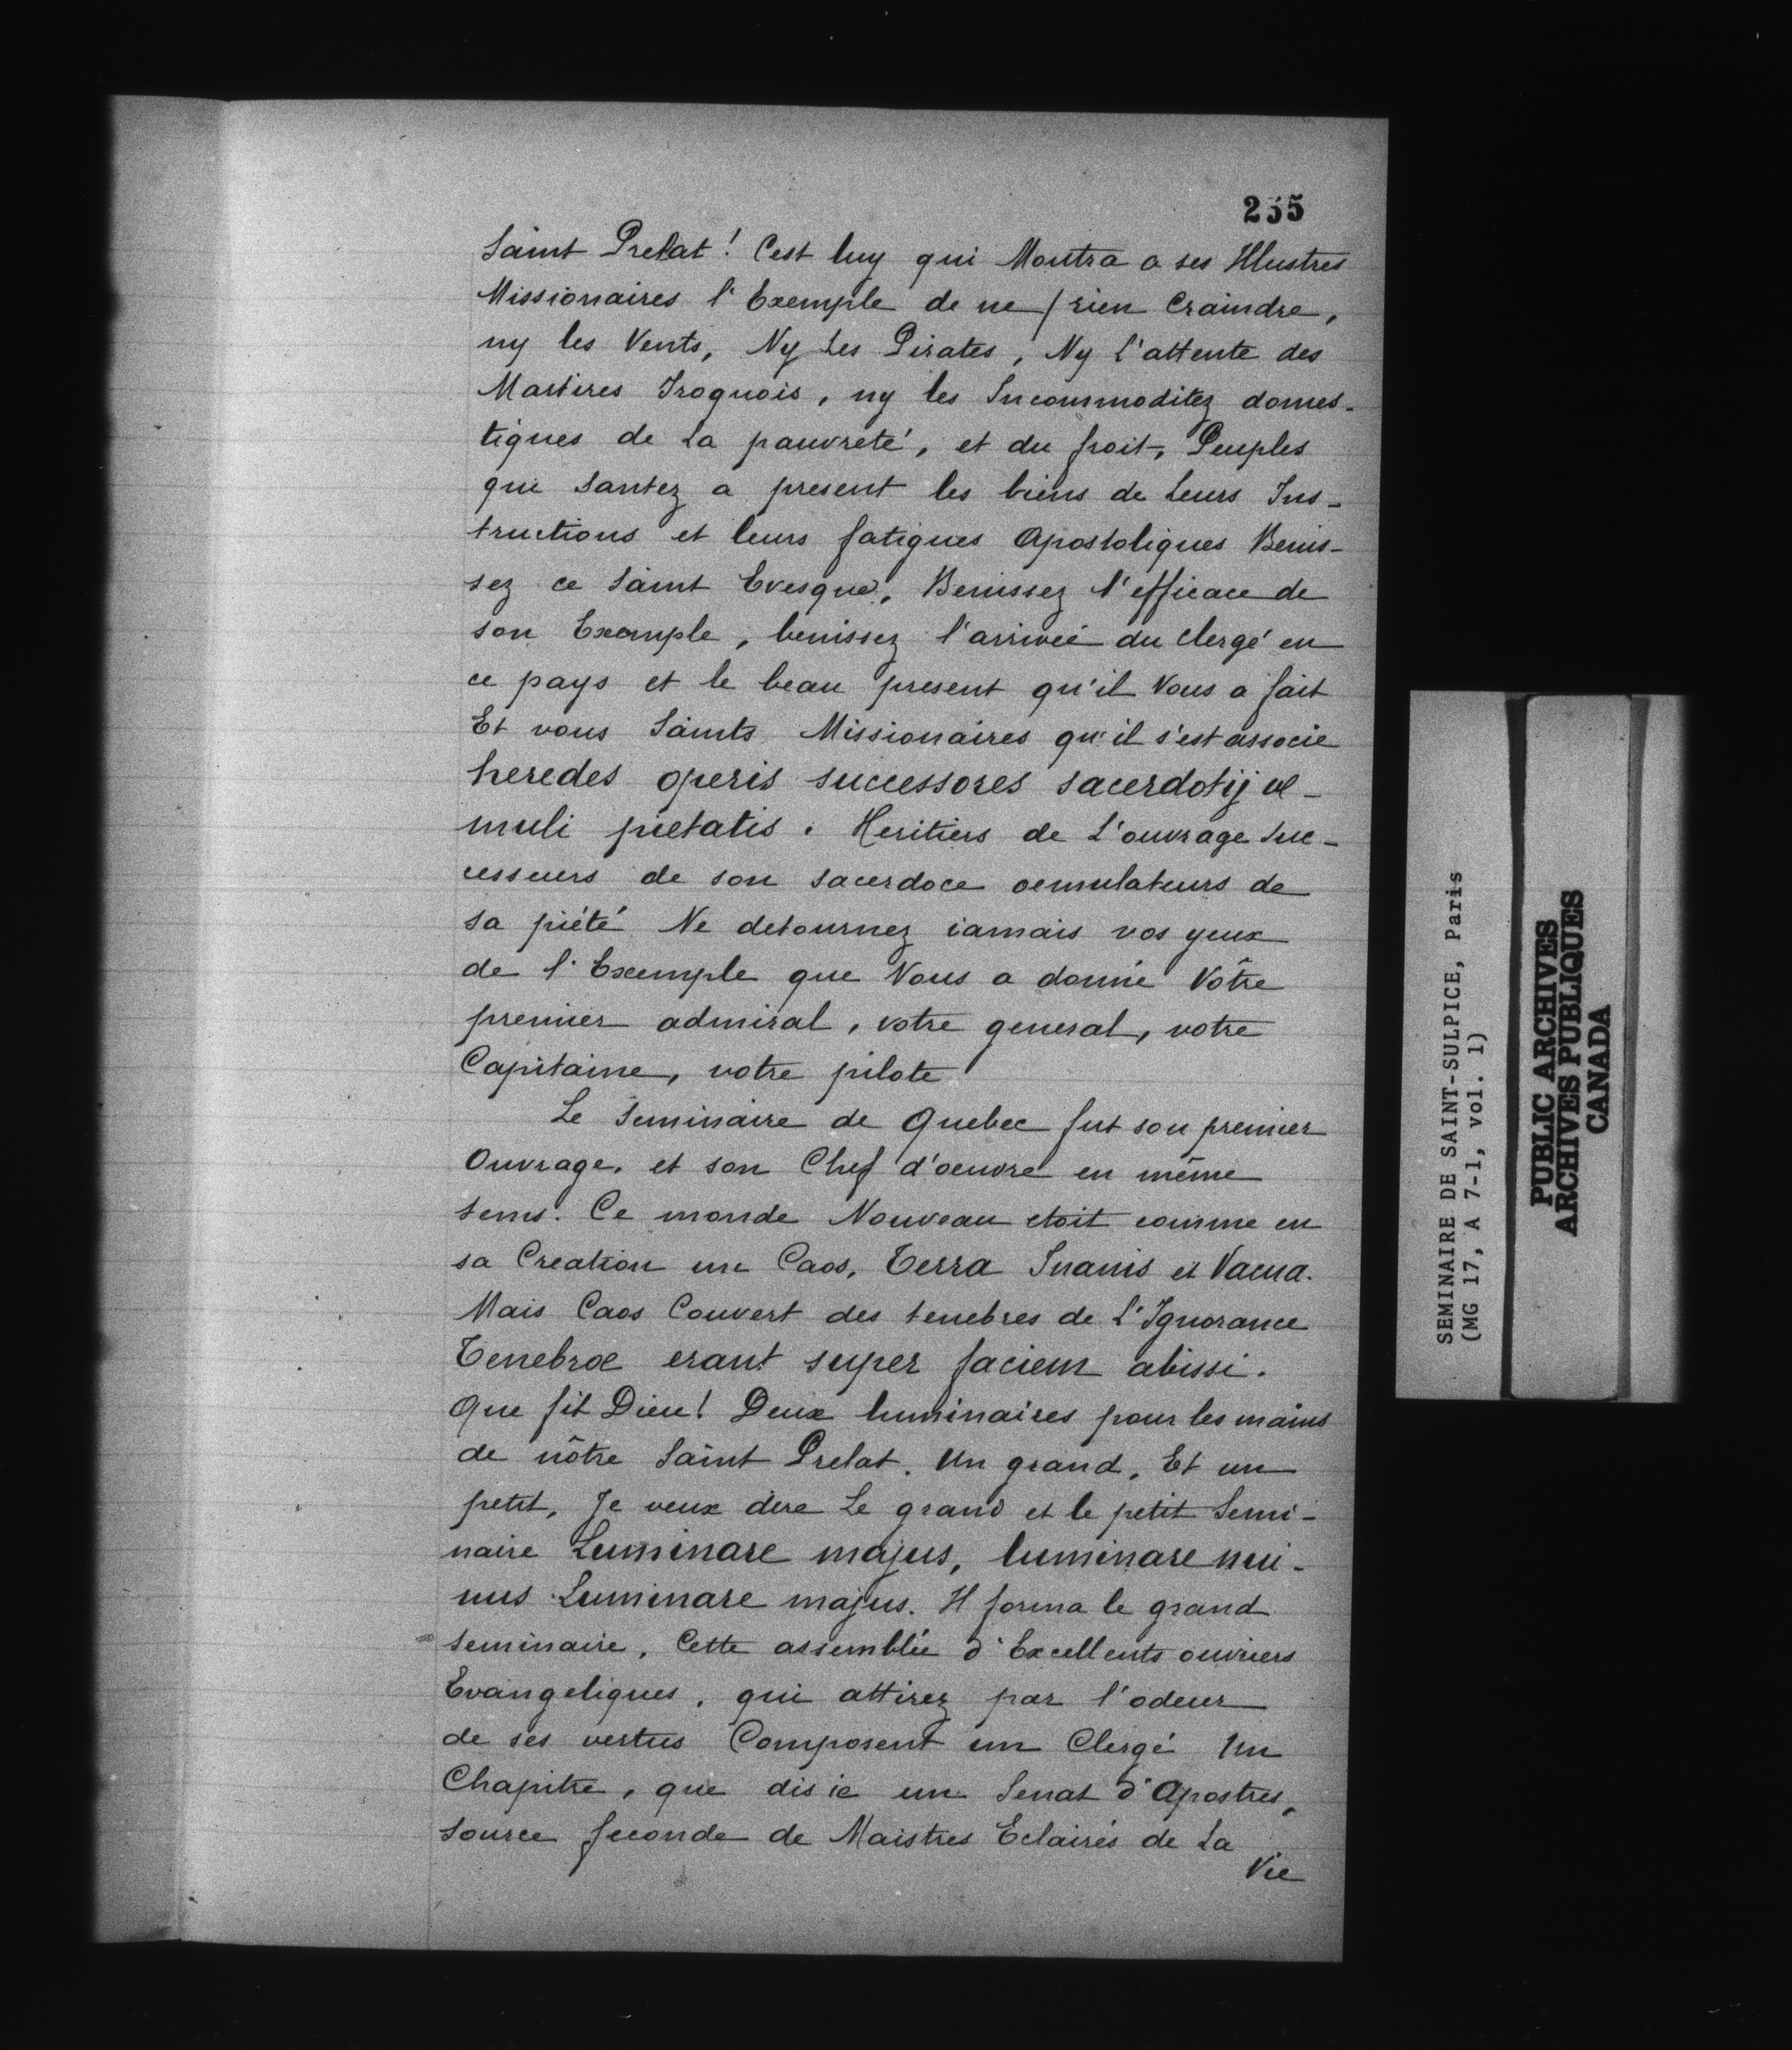 255
Saint Prelat! C'est luy qui Montra a ses Illustres
Missionaires l'Exemple de ne / rien Craindre,
ny les Vents, Ny Les Pirates, Ny L'attente des
Martires Iroquois, ny les Incommoditez domes-
tiques de La pauvreté, et du froit, Peuples
qui santez a present les biens de Leurs Ins-
tructions et leurs fatigues Apostoliques Benis-
sez ce Saint Evesque, Benissez l'efficace de
son Exemple, benissez l'arrivée du Clergé en
ce pays et le beau present qu'il Vous a fait
Et vous Saints Missionaires qu'il s'est associe
heredes operis successores sacerdotij æ-
muli pietatis. Heritiers de L'ouvrage Suc-
cesseurs de son Sacerdoce oemulateurs de
Sa piété Ne detournez iamais vos yeux
de l'Exemple que Vous a donné Vôtre
premier admiral, votre general, votre
Capitaine, votre pilote
Le Seminaire de Quebec fut son premier
Ouvrage, et son Chef d'oeuvre en même
tems. Ce monde Nouveau etoit comme en
sa Creation un Caos, Terra Inanis et Vacua.
Mais Caos Couvert des tenebres de L'Ignorance
Tenebræ erant super faciem abissi.
Que fit Dieu! Deux luminaires pour les mains
de nôtre Saint Prelat. Un grand, Et un
petit, Je veux dire Le grand et le petit Semi-
naire Luminare majus, luminare mi-
nus Luminare majus. Il forma le grand
Seminaire, Cette assemblée d'Excellents ouvriers
Evangeliques, qui attirez par l'odeur
de ses vertus Composent un Clergé Un
Chapitre, que dis ie un Senat d'Apostres,
Source feconde de Maistres Eclairés de La
Vie
SEMINAIRE DE SAINT-SULPICE, Paris
(MG 17, A 7-1, vol. 1)
PUBLIC ARCHIVES
ARCHIVES PUBLIQUES
CANADA